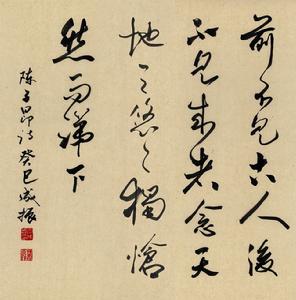 前不见古人後
不见来者念天
地之悠々獨愴
然而涕下
陈子昂诗癸巳振